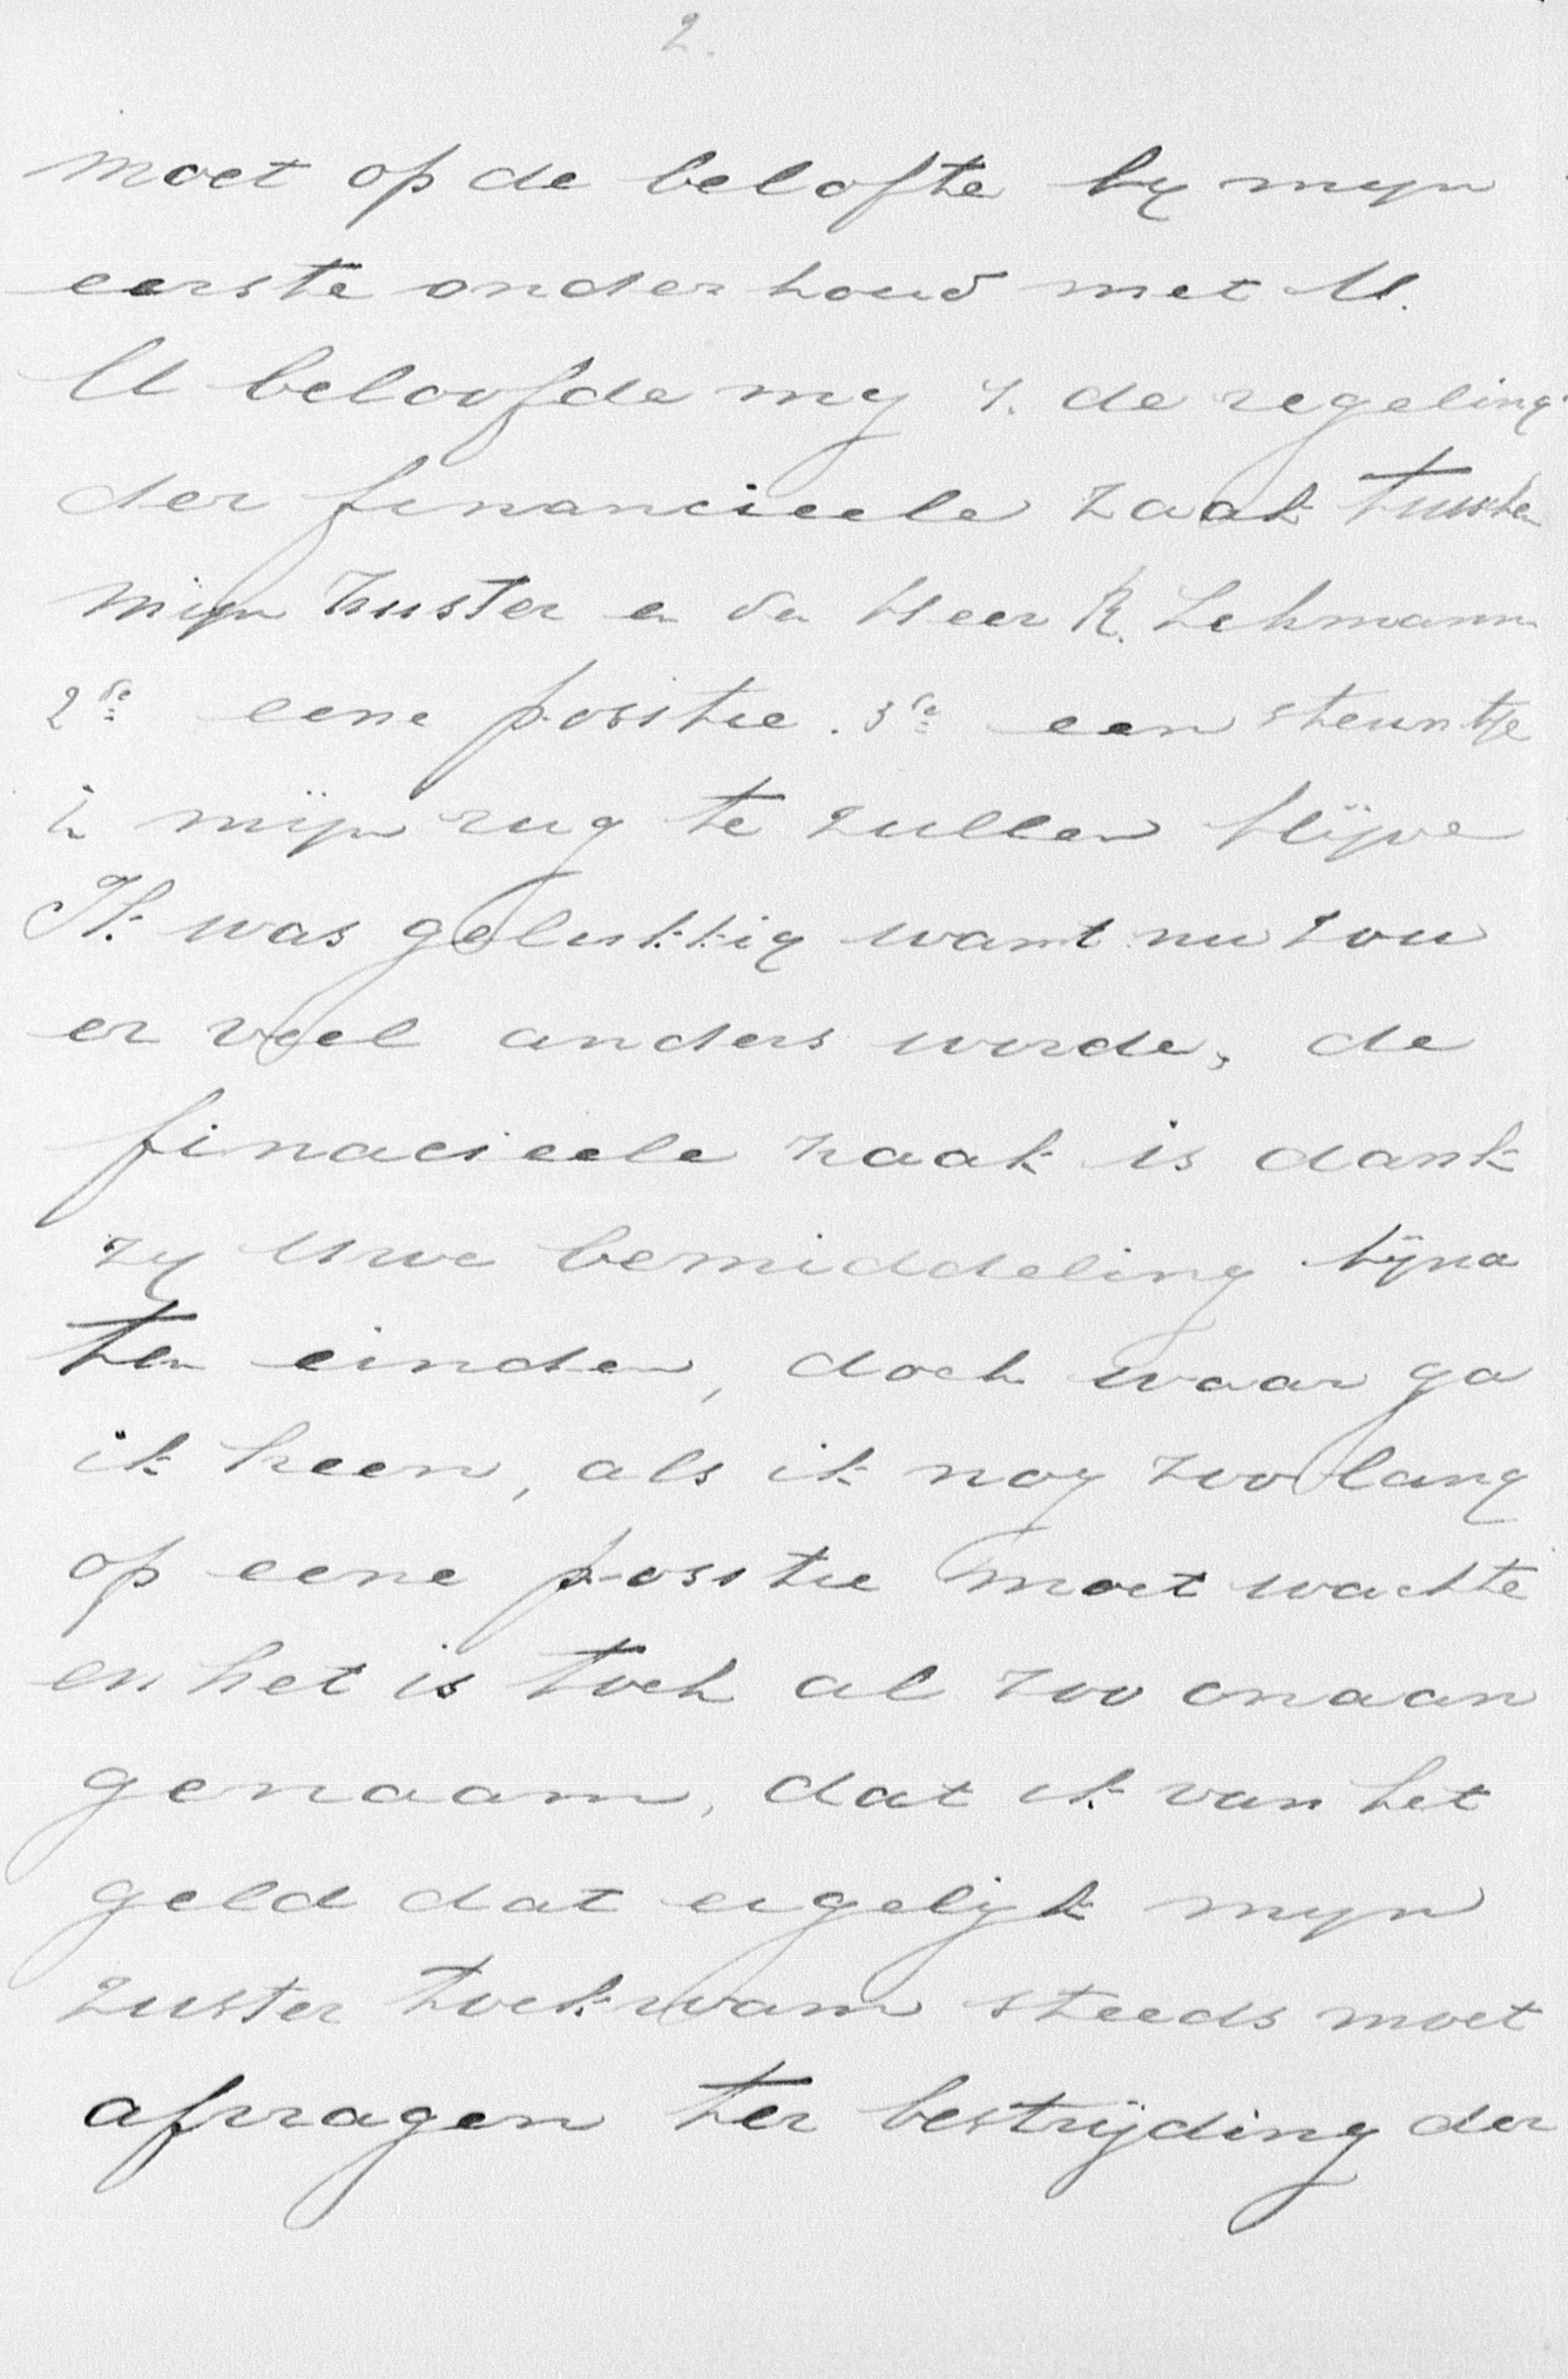 2.
moet op de belofte by myn
eerste onderhoud met U.
U beloofde my 1. de regeling
der financieele zaak tusschen
mijn zuster en den Heer R. Lehmann
2de eene positie. 3de een steuntje
in mijn rug te zullen blijve
Ik was gelukkig want nu zou
er veel anders worde, de
finacieele zaak is dank
zy Uwe bemiddeling bijna
ten einden, doch waar ga
ik heen, als ik nog zoo lang
op eene positie moet wachte
en het is toch al zoo onaan
genaam, dat ik van het
geld dat eigelyk myn
zuster toekwam steeds moet
afvragen ter bestrijding der